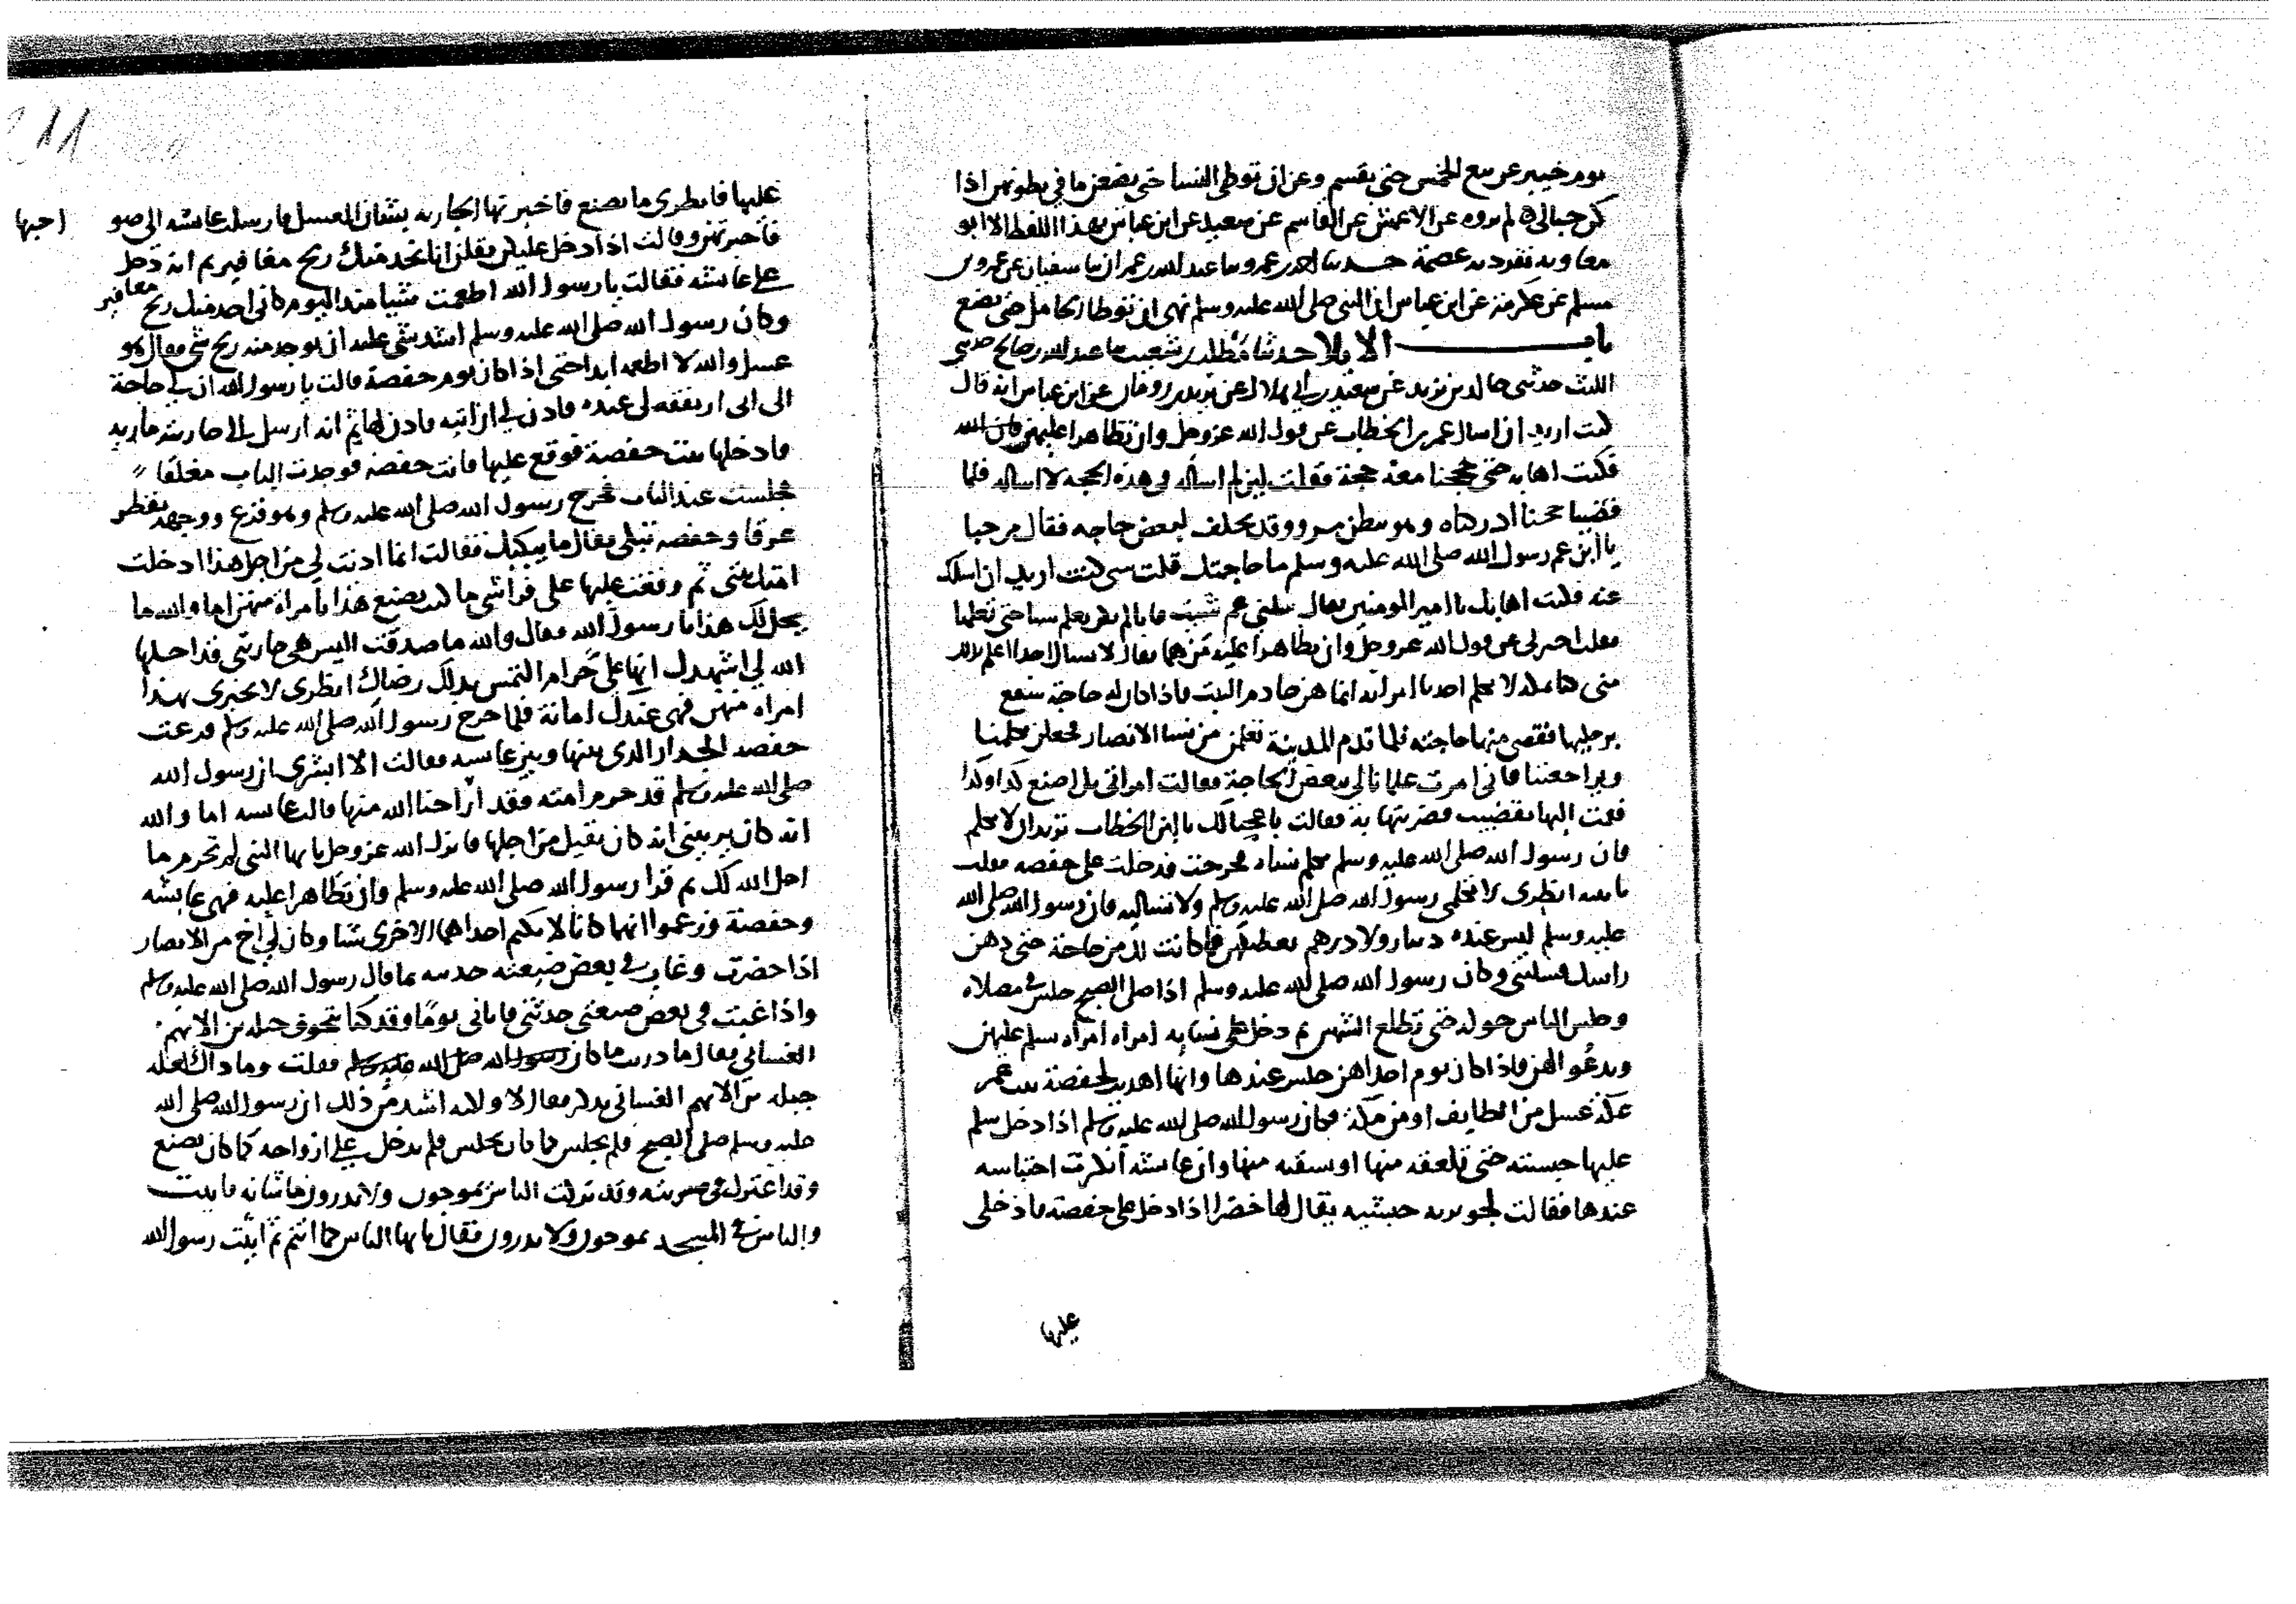 يوم خيبر عن بيع الخمس حتى يقسم وعن ان توطى النسا حتى يضعن ما في بطونهن اذا
كن حبالى لم يروه عن الاعمش عن القاسم عن سعيد عن ابن عباس بهذا اللفظ الا ابو
معاويه تفرد به عصمة حدثنا احمد بن عمرو ثنا عبد الله بن عمران ثنا سفيان عن عمرو بن
مسلم عن عكرمة عن ابن عباس ان النبي صلى الله عليه وسلم نهى ان توطا الحامل حتى تضع
باب الايلا حدثنا مطلب بن شعيب ثنا عبد الله بن صالح حدثني
الليث حدثني خالد بن يزيد عن سعيد بن ابي هلال عن يزيد بن رومان عن ابن عباس انه قال
كنت اريد ان اسال عمر بن الخطاب عن قول الله عز وجل وان تظاهرا عليه فان الله
فكنت اهابه حتى حججنا معه حجة فقلت لين لم اساله في هذه الحجه لا اساله فلما
قضينا حجنا ادركناه وهو ببطن مرو وقد تخلف لبعض حاجه فقال مرحبا
يا ابن عم رسول الله صلى الله عليه وسلم ما حاجتك قلت شي كنت اريد ان اسلك
عنه فكنت اهابك يا امير المومنين فقال سلني عم شيت فانا لم نكن نعلم شيا حتى تعلمنا
فقلت اخبرني عن قول الله عز وجل وان تظاهرا عليه من هما فقال لا تسال احدا اعلم بذلك
مني كنا بمكة لا يكلم احدنا امراته انما هن خادم البيت فاذا كان له حاجة سفع
برجليها فقضى منها حاجته فلما قدم المدينة تعلمن من نسا الانصار فجعلن يكلمننا
ويراجعننا فاني امرت غلمانا لي ببعض الحاجة فقالت امراتي بل اصنع كذا وكذا
فقمت اليها بقضيب فضربتها به فقالت يا عجبا لك يا ابن الخطاب تريد ان لا تكلم
فان رسول الله صلى الله عليه وسلم تكلمه نساه فخرجت فدخلت على حفصه فقلت
يا بنيه انظري لا تكلمي رسول الله صلى الله عليه وسلم ولا تساليه فان رسول الله صلى الله
عليه وسلم ليس عنده دينار ولا درهم يعطيكهن فما كانت لك من حاجة حتى دهن
راسك فسليني وكان رسول الله صلى الله عليه وسلم اذا صلى الصبح جلس في مصلاه
وجلس الناس حوله حتى تطلع الشمس ثم دخل على نسايه امراة امراه يسلم عليهن
ويدعو لهن فاذا كان يوم احداهن جلس عندها وانها اهديت لحفصة بنت عمر
عكة عسل من الطايف او من مكة فكان رسول الله صلى الله عليه وسلم اذا دخل يسلم
عليها حبسته حتى تلعقه منها او تسقيه منها وان عايشه انكرت احتباسه
عندها فقالت لجويريه حبشيه يقال لها خضرا اذا دخل على حفصه فادخلي
عليها
عليها فانظري ما يصنع فاخبرتها الجاريه بشان العسل فارسلت عايشه الى صواحبها
فاخبرتهن وقالت اذا دخل عليكن فقلن انا نجد منك ريح مغافير ثم انه دخل
على عايشه فقالت يا رسول الله اطعمت شيا منذ اليوم فاني اجد منك ريح مغافير
وكان رسول الله صلى الله عليه وسلم اشد شي عليه ان يوجد منه ريح شي فقال هو
عسل والله لا اطعمه ابدا حتى اذا كان يوم حفصة قالت يا رسول الله ان لي حاجة
الى ابي ان نفقة لي عنده فاذن لي ان اتيه فاذن لها ثم انه ارسل الى جاريته ماريه
فادخلها بيت حفصة فوقع عليها فاتت حفصه فوجدت الباب مغلقا
فجلست عند الباب فخرج رسول الله صلى الله عليه وسلم وهو فزع ووجهه يقطر
عرقا وحفصه تبكي فقال ما يبكيك فقالت انما اذنت لي من اجل هذا ادخلت
امتك بيتي ثم وقعت عليها على فراشي ما كنت تصنع هذا بامراة منهن اما والله ما
يحل لك هذا يا رسول الله فقال والله ما صدقت اليس هي جاريتي قد احلها
الله لي اشهدك انها علي حرام التمس بذلك رضاك انظري لا تخبري بهذا
امراة منهن فهي عندك امانة فلما خرج رسول الله صلى الله عليه وسلم قرعت
حفصه الجدار الذي بينها وبين عايشه فقالت الا ابشري ان رسول الله
صلى الله عليه وسلم قد حرم امته فقد اراحنا الله منها فقالت عايشه اما والله
انه كان يريبني انه كان يقيل من اجلها فانزل الله عز وجل يا ايها النبي لم تحرم ما
احل الله لك ثم قرا رسول الله صلى الله عليه وسلم وان تظاهرا عليه فهي عايشه
وحفصة وزعموا انهما كانتا لا تكتم احداهما الاخرى شيا وكان لي اخ من الانصار
اذا حضرت وغاب في بعض ضيعته حدثته بما قال رسول الله صلى الله عليه وسلم
واذا غبت في بعض ضيعتي حدثني فاتاني يوما وقد كنا نتخوف جبله بن الايهم
الغساني فقال ما دريت ما كان رسول الله صلى الله عليه وسلم فقلت وما ذاك لعله
جبله بن الايهم الغساني يذكر فقال لا ولكنه اشد من ذلك ان رسول الله صلى الله
عليه وسلم صلى الصبح فلم يجلس كما كان يجلس فلم يدخل على ازواجه كما كان يصنع
وقد اعتزل في مشربته وقد تركت الناس يموجون ولا يدرون ما شانه فاتيت
والناس في المسجد يموجون ولا يدرون فقال يا ايها الناس كما انتم ثم اتيت رسول الله